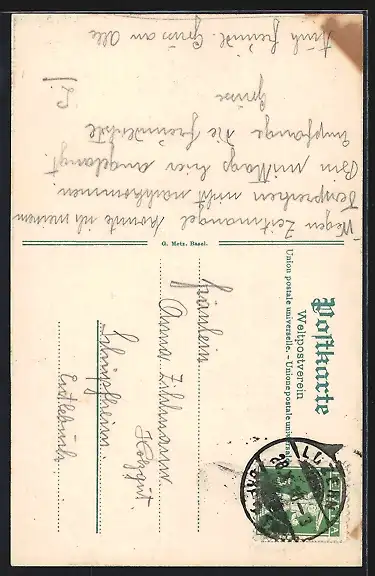 Postkarte
Weltpostverein
Union postale universelle. - Unione postale universale
G. Metz, Basel.
Fräulein
Anna Zihlmann
Holzgut.
Schüpfheim.
Entlebuch.
Wegen Zeitmangel konnte ich meinem
Versprechen nicht nachkommen
Bin mittags hier angelangt.
Empfange die freundlichste
Grüsse
Auch freundl. Gruss an Alle
HELVETIA
LUZERN